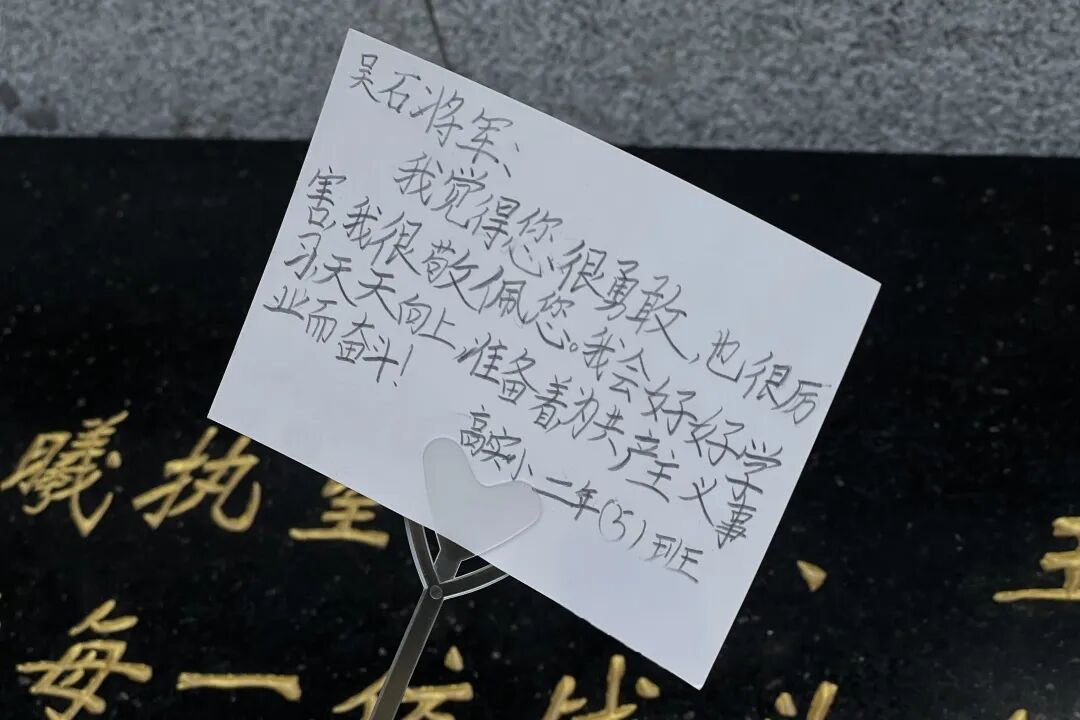 吴石将军:
我觉得您很勇敢,也很厉
害,我很敬佩您。我会好好学
习,天天向上,准备着为共产主义事
业而奋斗!
高实小二年(5)班
曦执
每一位